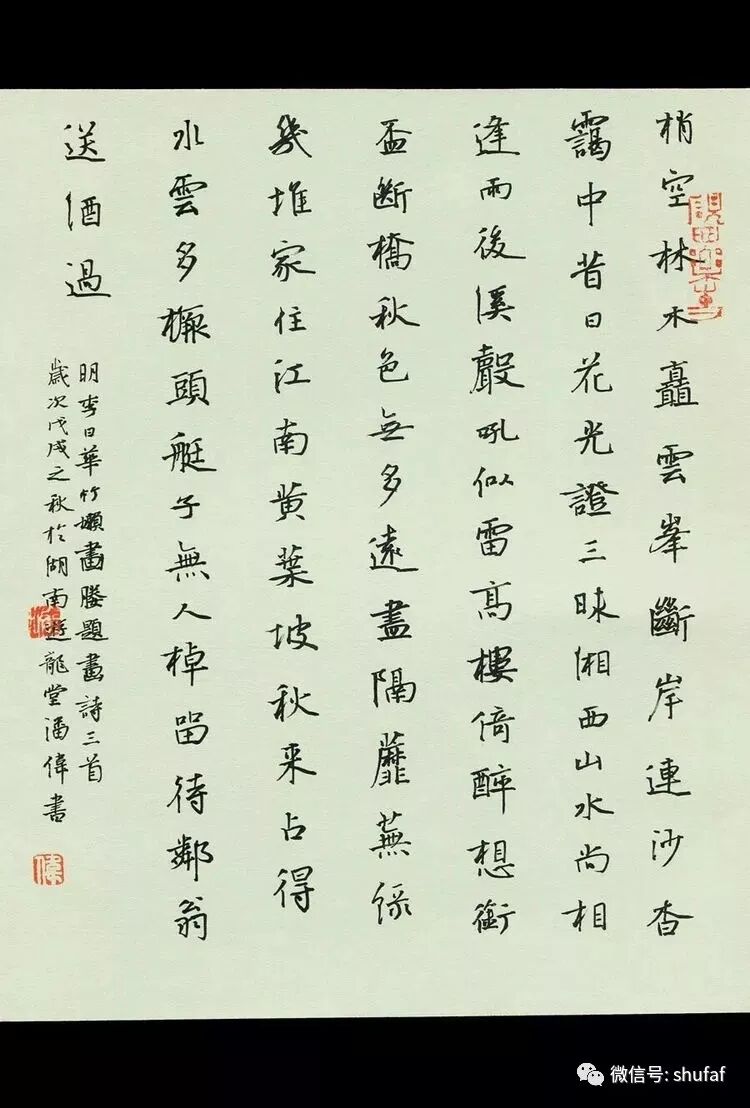 梢空林木矗雲峯斷岸連沙杳
靄中昔日花光證三昧湘西山水尚相
逢雨後溪聲吼似雷高樓倚醉想銜
盃斷橋秋色無多遠盡隔蘼蕪綠
幾堆家住江南黄葉坡秋来占得
水雲多橛頭艇子無人棹留待鄰翁
送酒過
明李日華竹嬾畫媵題畫詩三首
歲次戊戌之秋於湖南遊龍堂潘偉書
微信号: shufaf